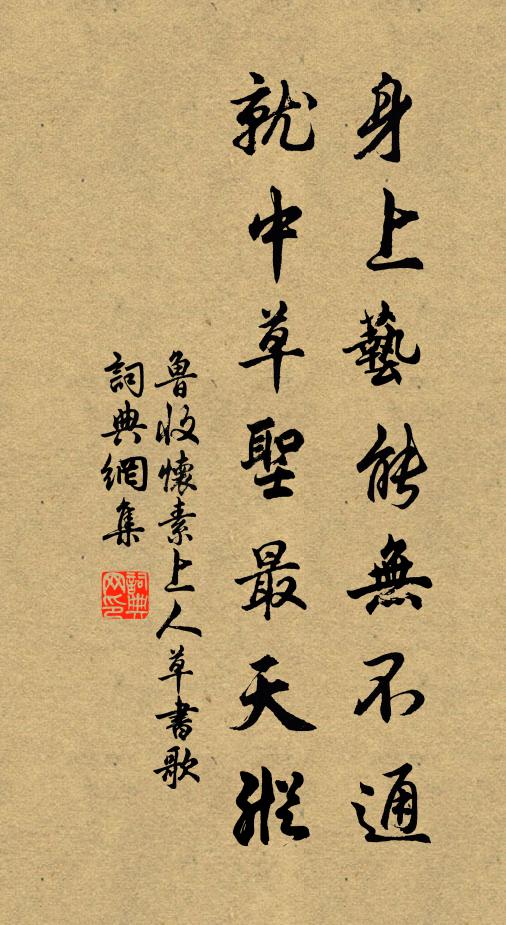 身上藝能無不通
就中草聖最天縱
魯收懷素上人草書歌
詞典網集
詞典網印